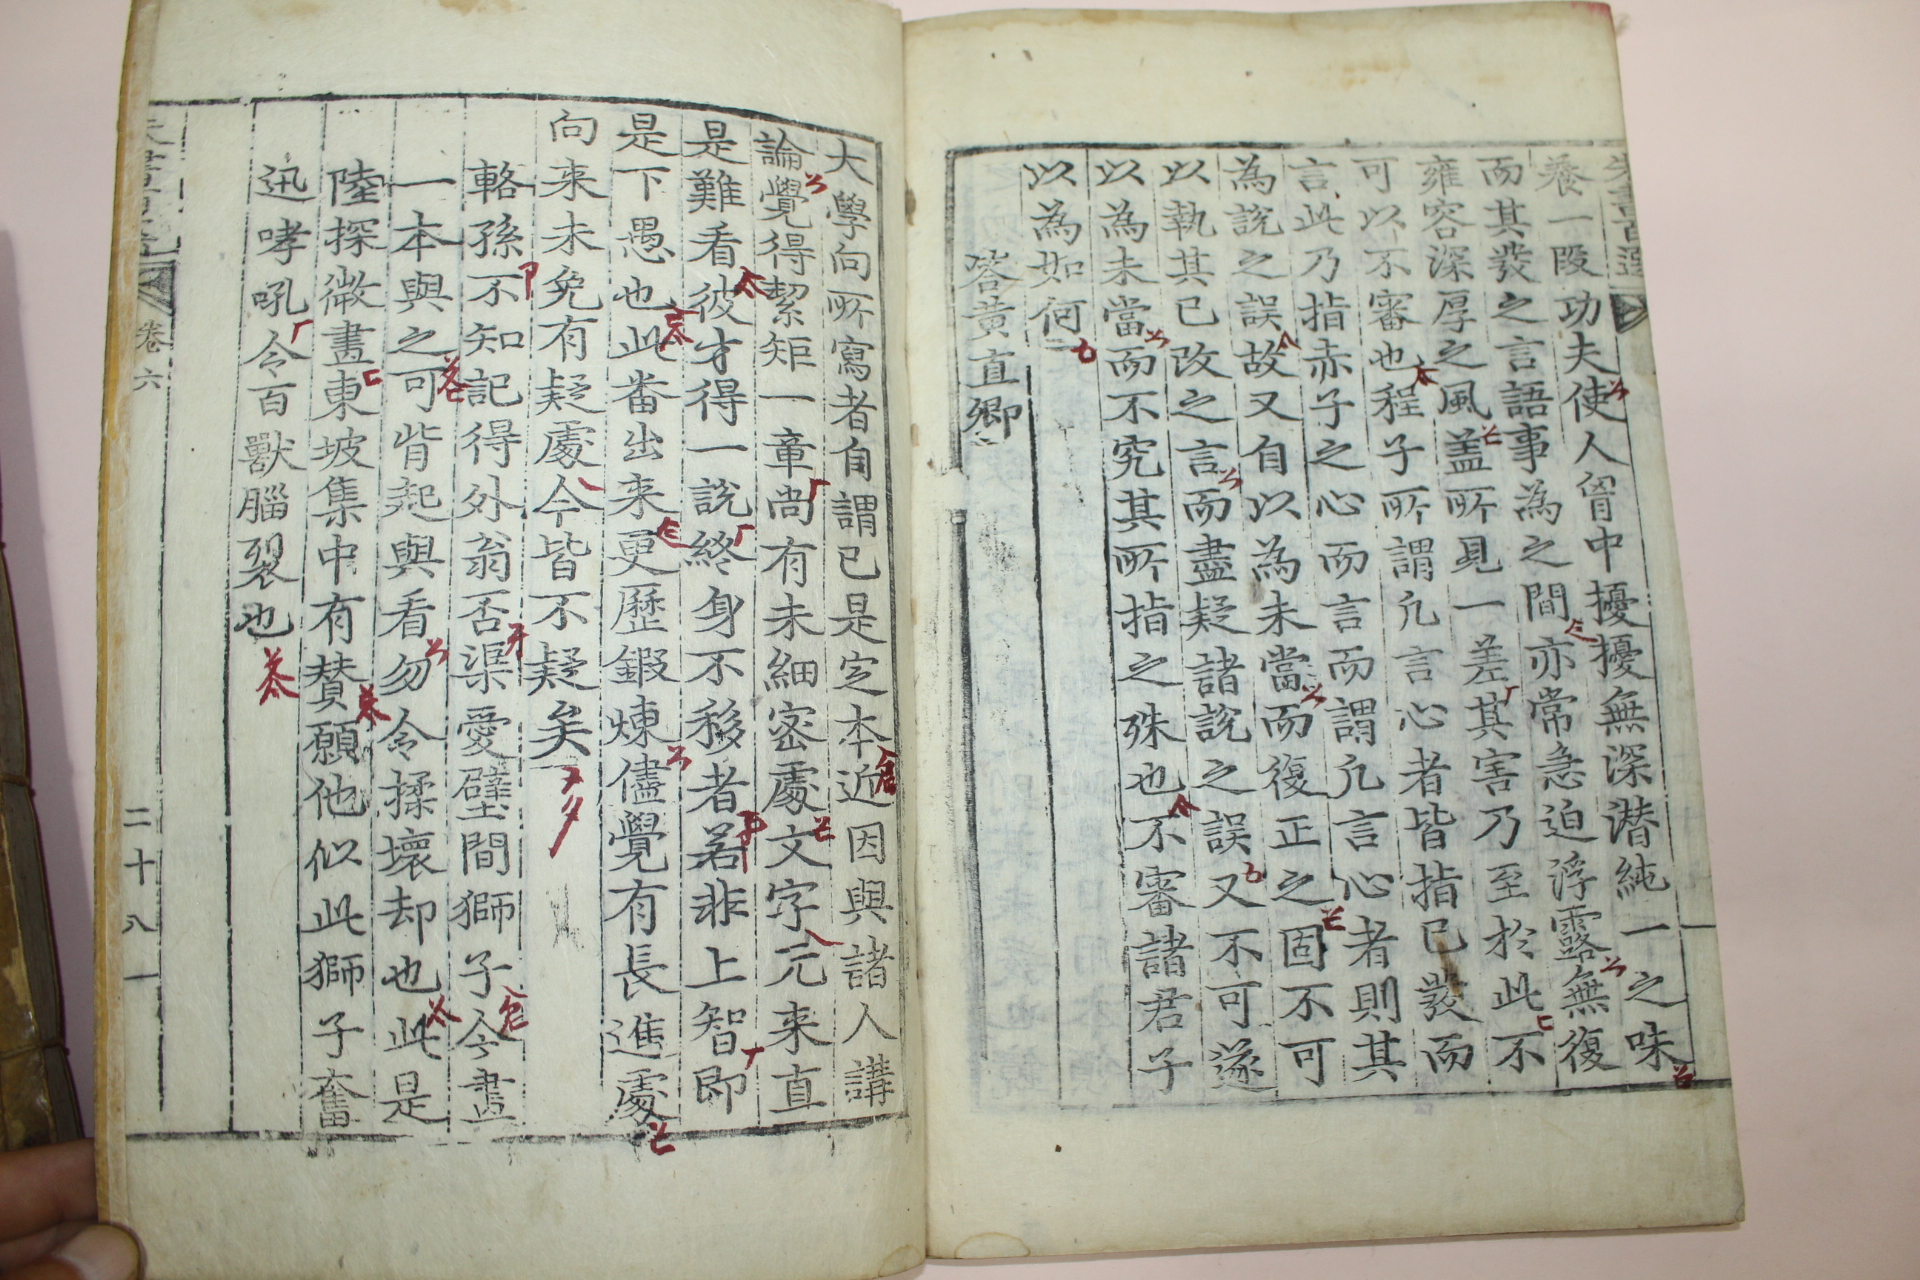 朱書百選
養一段功夫使人胷中擾擾無深潛純一之味
而其發之言語事為之間亦常急迫浮露無復
雍容深厚之風盖所見一差其害乃至於此不
可以不審也程子所謂凡言心者皆指已發而
言此乃指赤子之心而言而謂凡言心者則其
為說之誤故又自以為未當而復正之固不可
以執其已改之言而盡疑諸說之誤又不可遂
以為未當而不究其所指之殊也不審諸君子
以為如何
答黃直卿
大學向所寫者自謂已是定本近因與諸人講
論覺得絜矩一章尚有未細密處文字元来直
是難看彼才得一說終身不移者若非上智即
是下愚也此番出来更歷鍛煉儘覺有長進處
向来未免有疑處今皆不疑矣
輅孫不知記得外翁否渠愛壁間獅子今畫
一本與之可背起與看勿令揉壞却也此是
陸探微畫東坡集中有賛願他似此獅子奮
迅哮吼令百獸腦裂也
卷六
二十八